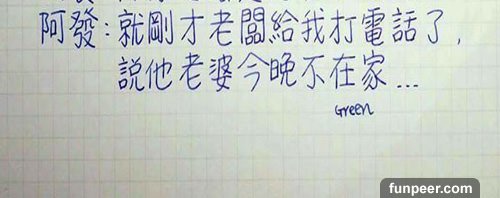 阿發:就剛才老闆給我打電話了,
說他老婆今晚不在家...
Green
funpeer.com